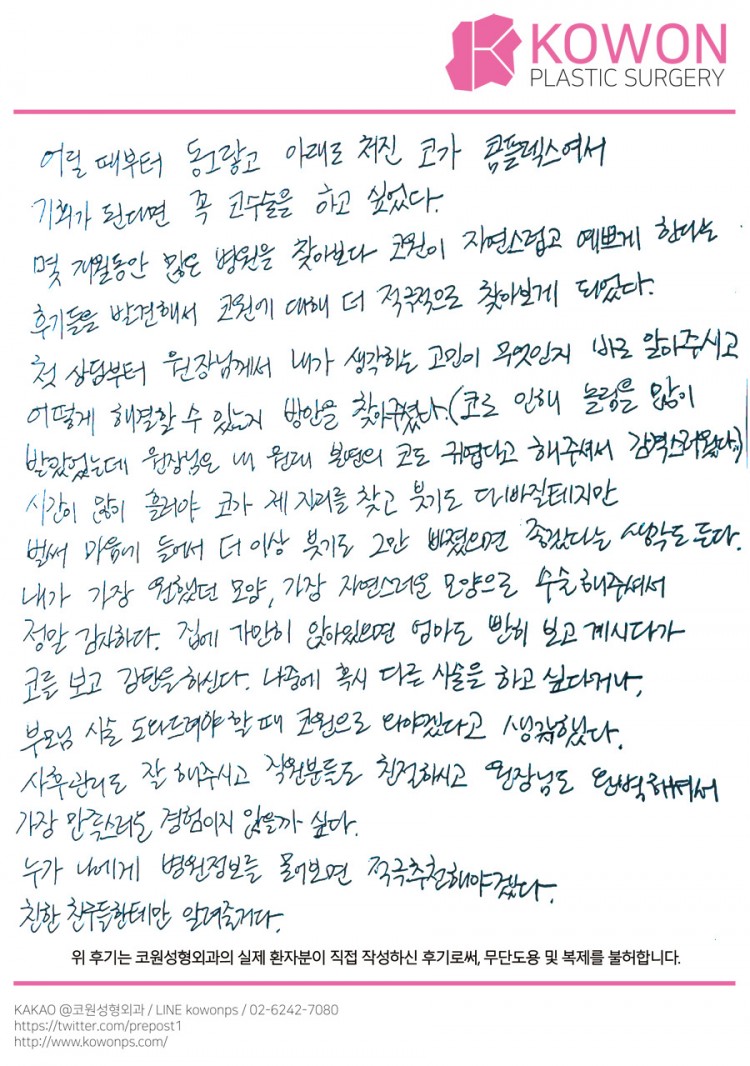 KOWON
PLASTIC SURGERY
어릴 때부터 동그랗고 아래로 처진 코가 콤플렉스여서
기회가 된다면 꼭 코수술을 하고 싶었다.
몇 개월동안 많은 병원을 찾아보다 코원이 자연스럽고 예쁘게 한다는
후기들을 발견해서 코원에 대해 더 적극적으로 찾아보게 되었다.
첫 상담부터 원장님께서 내가 생각하는 고민이 무엇인지 바로 알아주시고
어떻게 해결할 수 있는지 방안을 찾아주셨다.(코로 인해 놀림을 많이
받았었는데 원장님은 내 원래 본연의 코도 귀엽다고 해주셔서 감격스러웠다ㅠ)
시간이 많이 흘러야 코가 제 자리를 찾고 붓기도 다 빠질테지만
벌써 마음에 들어서 더 이상 붓기도 그만 빠졌으면 좋겠다는 생각도 든다.
내가 가장 원했던 모양, 가장 자연스러운 모양으로 수술해주셔서
정말 감사하다. 집에 가만히 앉아있으면 엄마도 빤히 보고 계시다가
코를 보고 감탄을 하신다. 나중에 혹시 다른 시술을 하고 싶다거나,
부모님 시술 도와드려야 할 때 코원으로 와야겠다고 생각했다.
사후관리도 잘 해주시고 직원분들도 친절하시고 원장님도 완벽하셔서
가장 만족스러운 경험이지 않을까 싶다.
누가 나에게 병원정보를 물어보면 적극추천해야겠다.
친한 친구들한테만 알려줄거다.
위 후기는 코원성형외과의 실제 환자분이 직접 작성하신 후기로써, 무단도용 및 복제를 불허합니다.
KAKAO @코원성형외과 / LINE kowonps / 02-6242-7080
https://twitter.com/prepost1
http://www.kowonps.com/